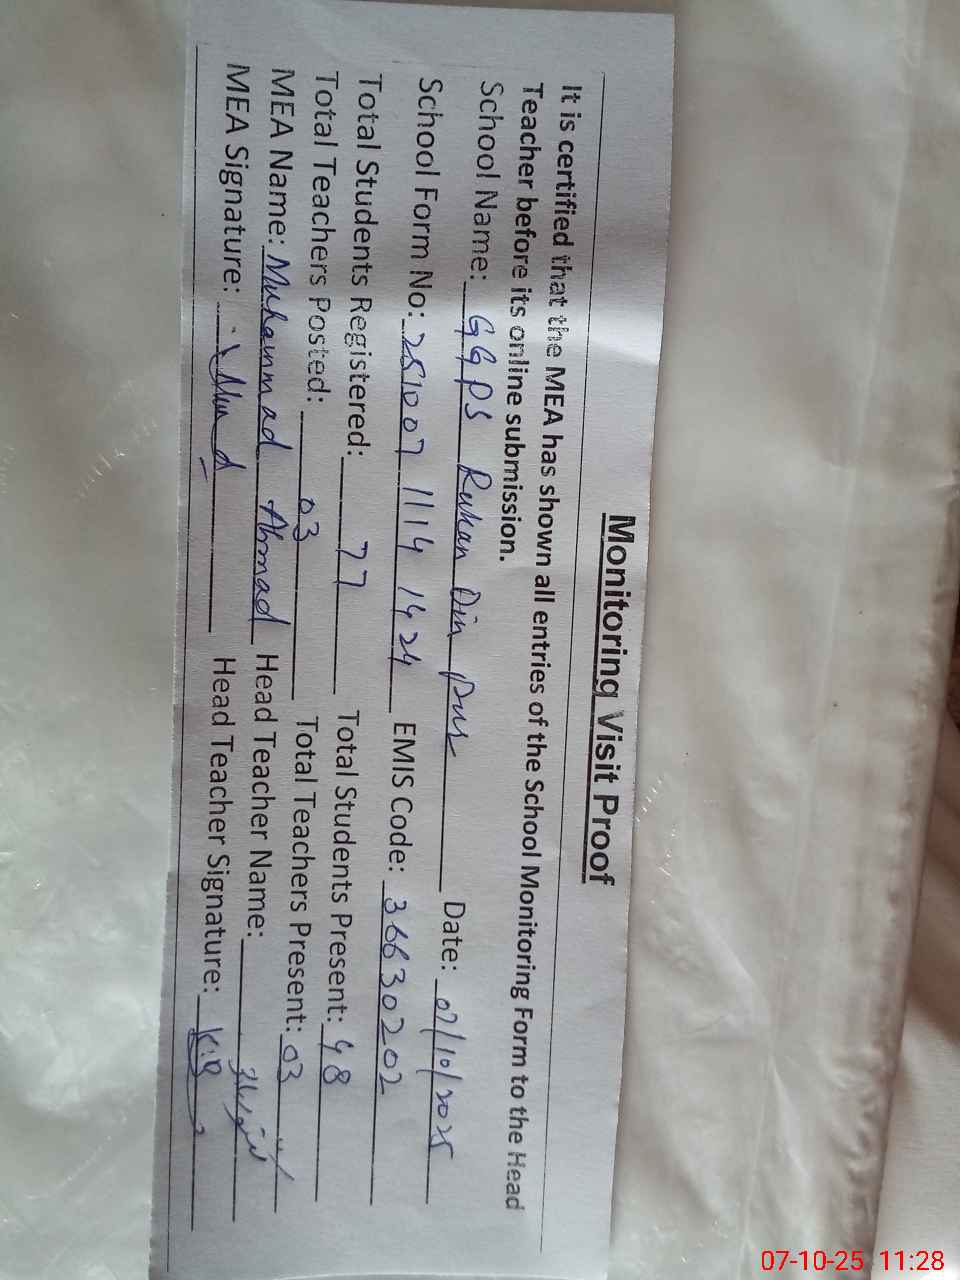 Monitoring Visit Proof
It is certified that the MEA has shown all entries of the School Monitoring Form to the Head
Teacher before its online submission.
School Name: GGPS Rukan Din Pur Date: 07/10/2025
School Form No: 251007 1114 1424 EMIS Code: 36630202
Total Students Registered: 77 Total Students Present: 48
Total Teachers Posted: 03 Total Teachers Present: 03
MEA Name: Muhammad Ahmad Head Teacher Name:
MEA Signature: Head Teacher Signature:
07-10-25 11:28